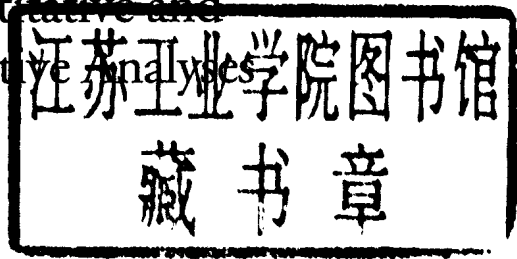 titative and
tive Analyses
江苏工业学院图书馆
藏书章